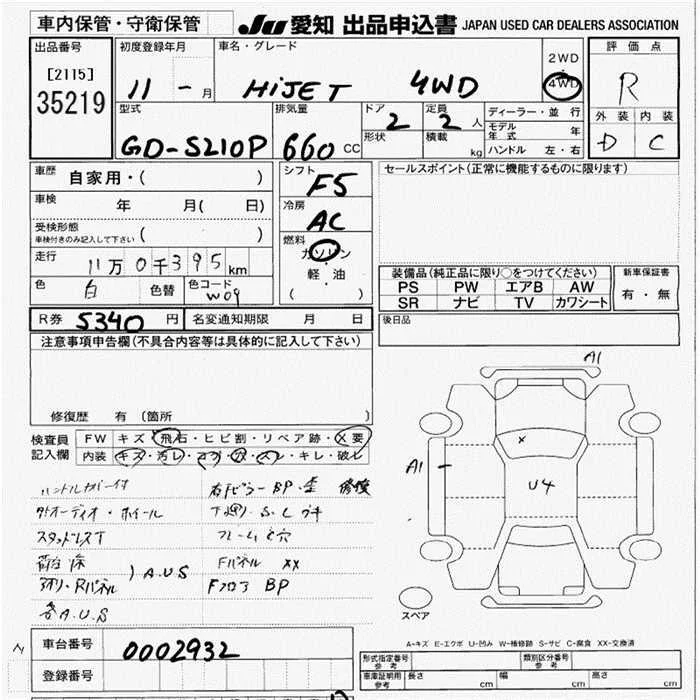 車内保管・守衛保管
JU 愛知 出品申込書 JAPAN USED CAR DEALERS ASSOCIATION
出品番号
[2115]
35219
初度登録年月
11 - 月
車名・グレード
HIJET 4WD
2WD
4WD
評価点
R
外装 内装
D C
型式
GD-S210P
排気量
660 CC
ドア
2
形状
定員
2 人
積載
kg
ディーラー・並行
モデル年式 年
ハンドル 左・右
車歴
自家用・( )
車検 年 月( 日)
受検形態
車検付きのみ記入して下さい ( )
走行 11万0千395km
色 白 色替 色コード W09
シフト
F5
冷房
AC
燃料
ガソリン
・
軽・油
( )
セールスポイント(正常に機能するものに限ります)
装備品(純正品に限り○をつけてください)
PS PW エアB AW
SR ナビ TV カワシート
新車保証書
有・無
R券 5340 円 名変通知期限 月 日
後日品
注意事項申告欄(不具合内容等は具体的に記入して下さい)
修復歴 有 (箇所
検査員記入欄
FW キズ・飛石・ヒビ割・リペア跡・X要
内装 キズ・汚レ・コゲ・穴・スレ・キレ・破レ
ハンドルカバー付
外オーディオ・ホイール
スタッドレスT
荷台 床
アオリ・Rパネル ) A.U.S
各A.U.S
右Fピラー BP・歪 修復
下廻り S・L ウキ
フレームC穴
Fパネル XX
Fフロア BP
A1
A1
X
U4
スペア
A-キズ E-エクボ U-凹み W-補修跡 S-サビ C-腐食 XX-交換済
車台番号
0002932
登録番号
形式指定番号
参考
類別区分番号
参考
車庫証明用
参考
長さ cm
幅 cm
高さ cm